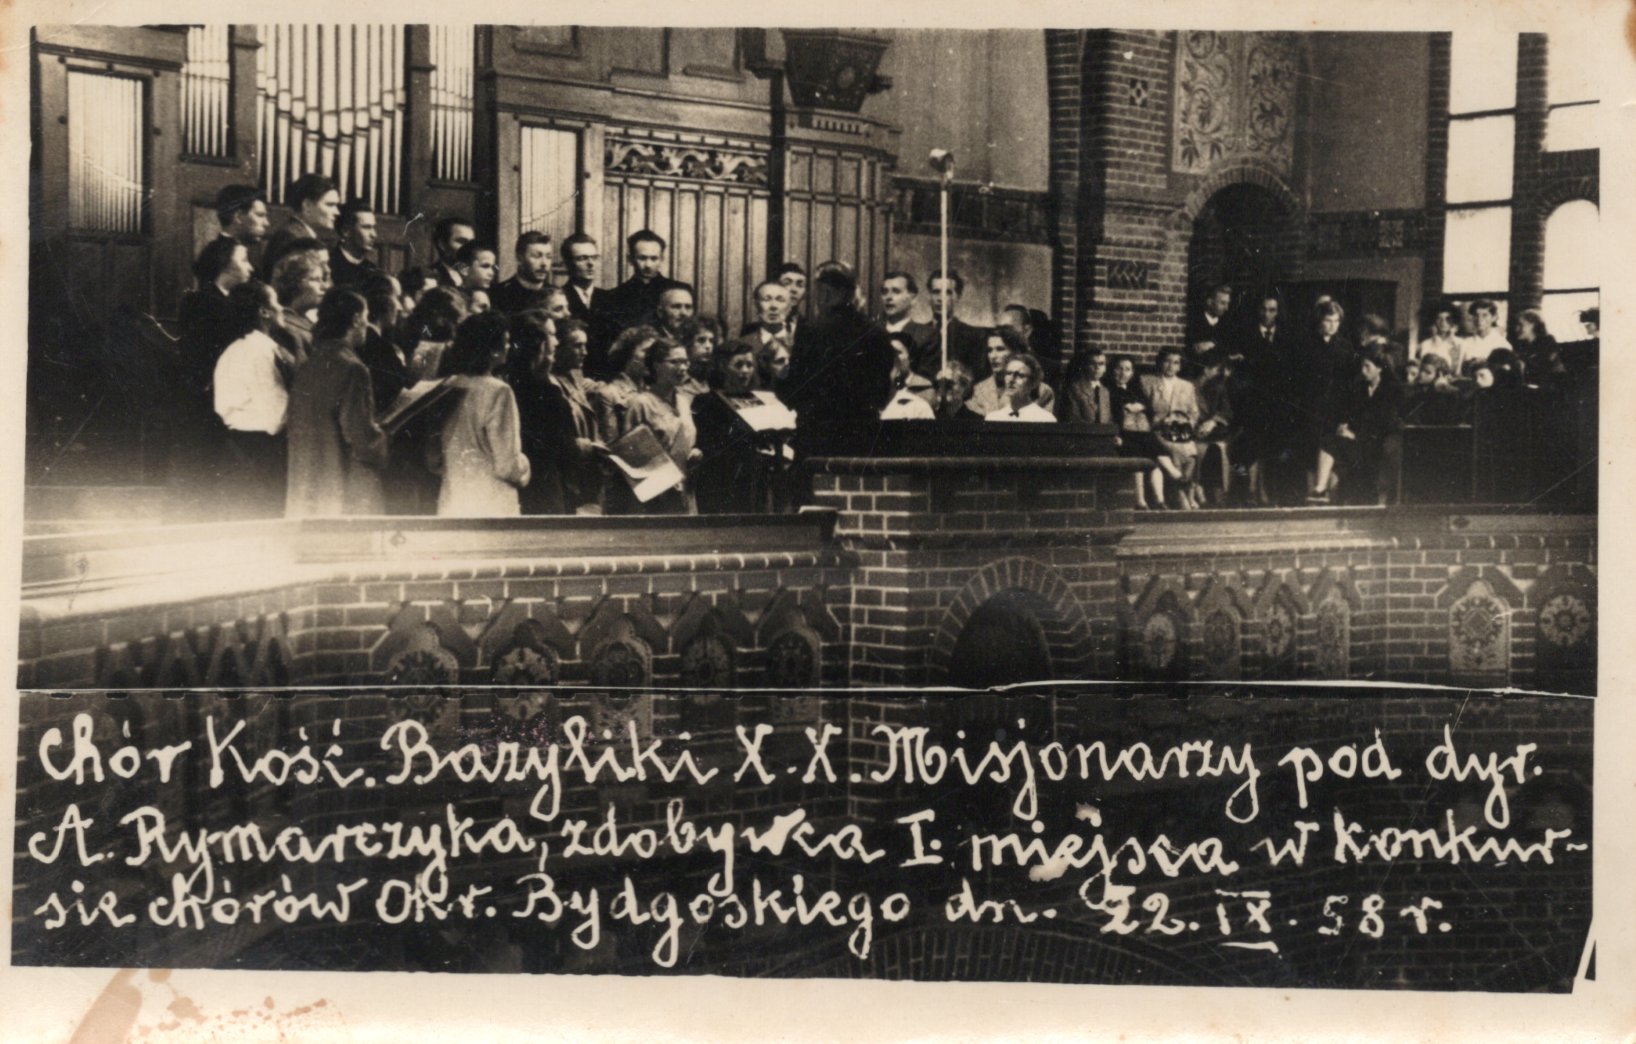 Chór Kość. Bazyliki X.X. Misjonarzy pod dyr.
A. Rymarczyka, zdobywca I. miejsca w konkur-
sie chórów Okr. Bydgoskiego dn. 22. IX. 58 r.